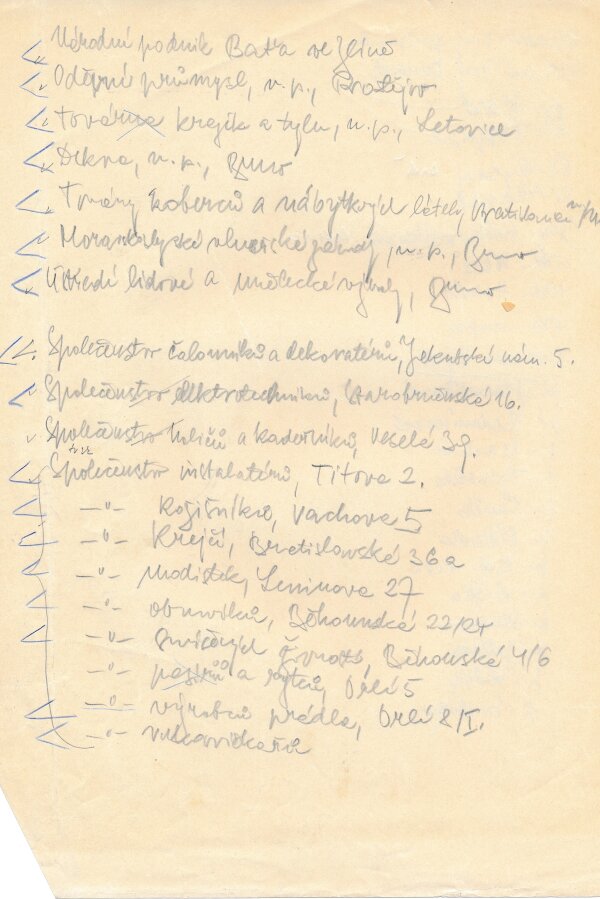 Národní podnik Baťa ve Zlíně
Oděvní průmysl, n. p., Prostějov
továrna krajek a tylu, n. p., Letovice
Dekva, n. p., Brno
Továrny koberců a nábytkových látek, Bratislavská
Moravskoslezské vlnařské závody, n. p., Brno
Ústředí lidové a umělecké výroby, Brno
Společenstvo čalouníků a dekoratérů, Jakubské nám. 5.
Společenstvo elektrotechniků, Starobrněnská 16.
Společenstvo holičů a kadeřníků, Veselá 39.
Společenstvo instalatérů, Titova 2.
—"— kožišníků, Vachova 5
—"— Krejčí, Bratislavská 36a
—"— modistek, Leninova 27
—"— obuvníků, Běhounská 22/24
—"— živností, Běhounská 4/6
—"— pasířů a rytců, Orlí 5
—"— výrobců prádla, Orlí 8/I.
—"— rukavičkářů